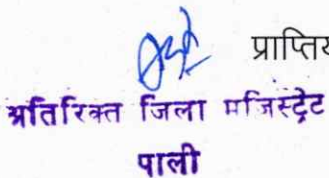 प्राप्तिय
अतिरिक्त जिला मजिस्ट्रेट
पाली